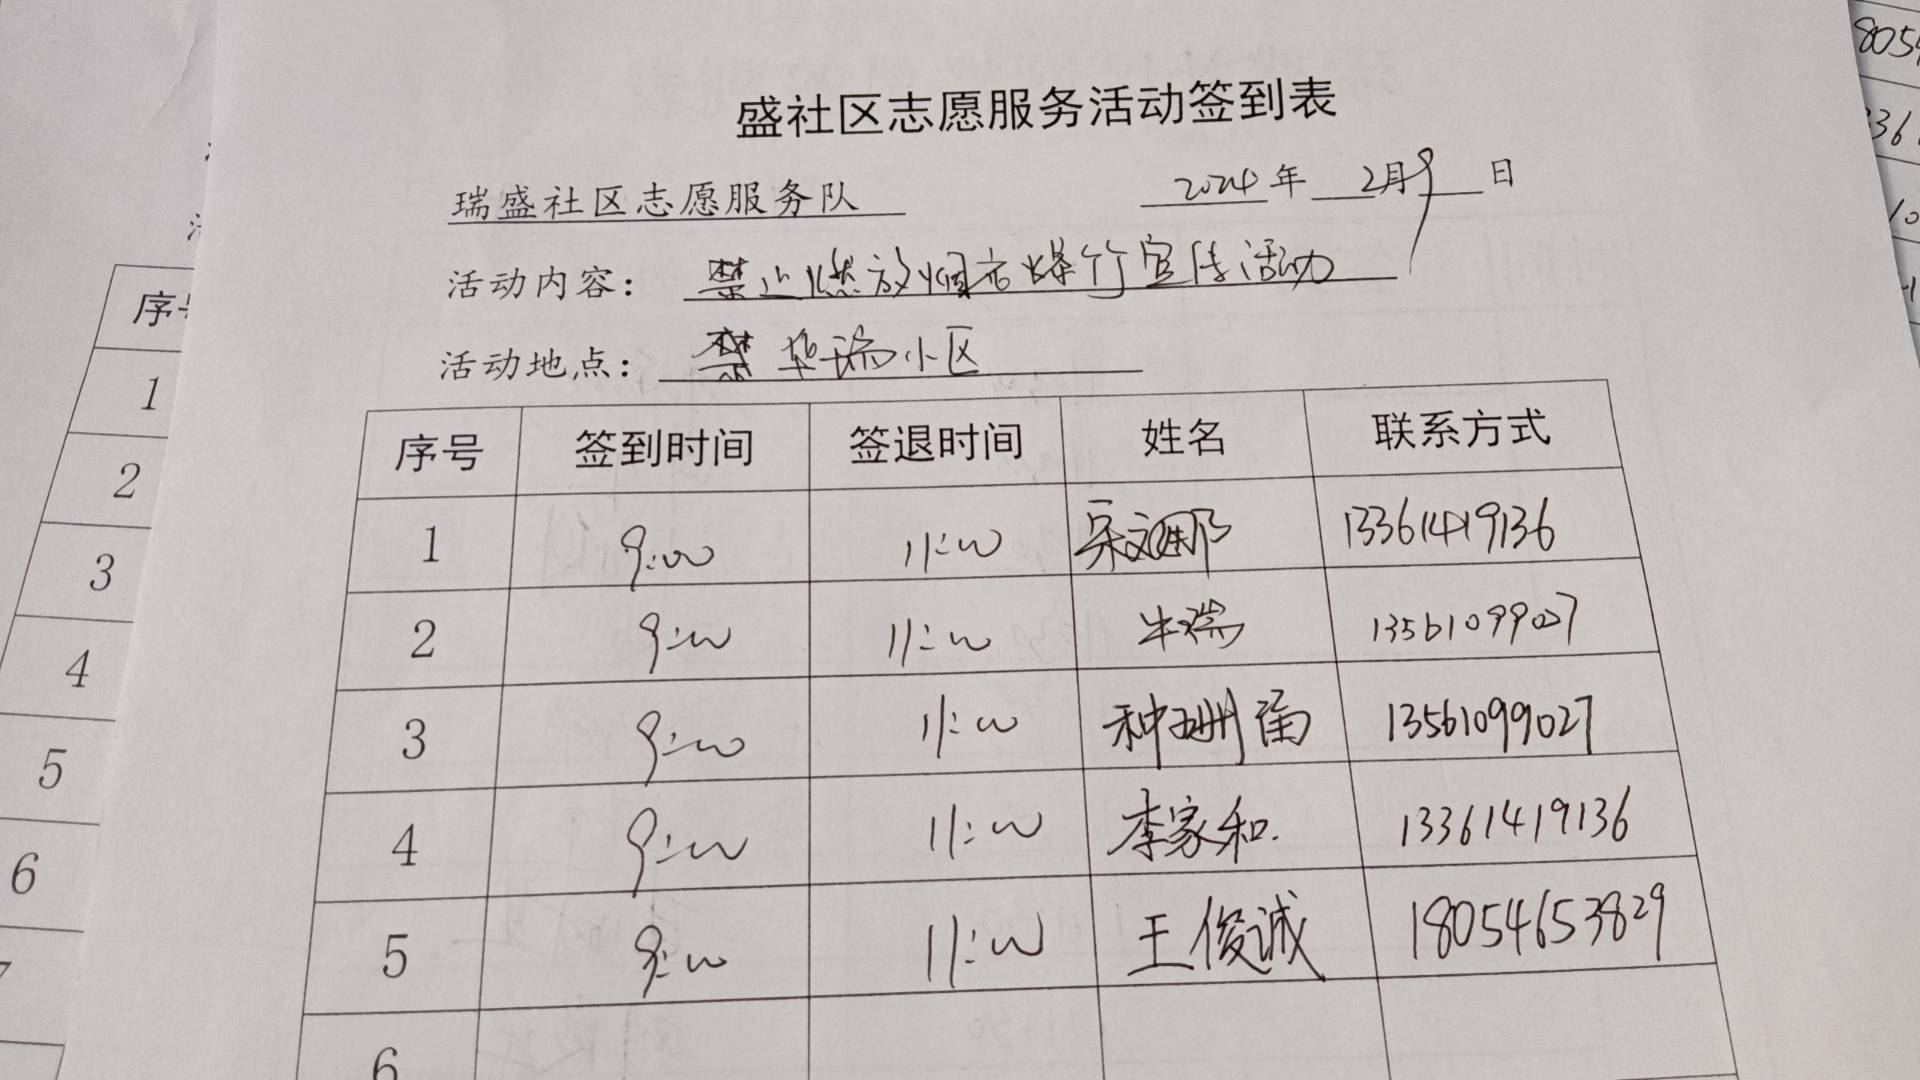 盛社区志愿服务活动签到表
瑞盛社区志愿服务队 2024年 2月9日
活动内容: 禁止燃放烟花爆竹宣传活动
活动地点: 华瑞小区
序号 签到时间 签退时间 姓名 联系方式
1 9:00 11:00 13361419136
2 9:00 11:00 牛瑞 13561099027
3 9:00 11:00 种珊珊 13561099027
4 9:00 11:00 李家和 13361419136
5 9:00 11:00 王俊诚 18054653829
6
序
1
2
3
4
5
6
8054
336